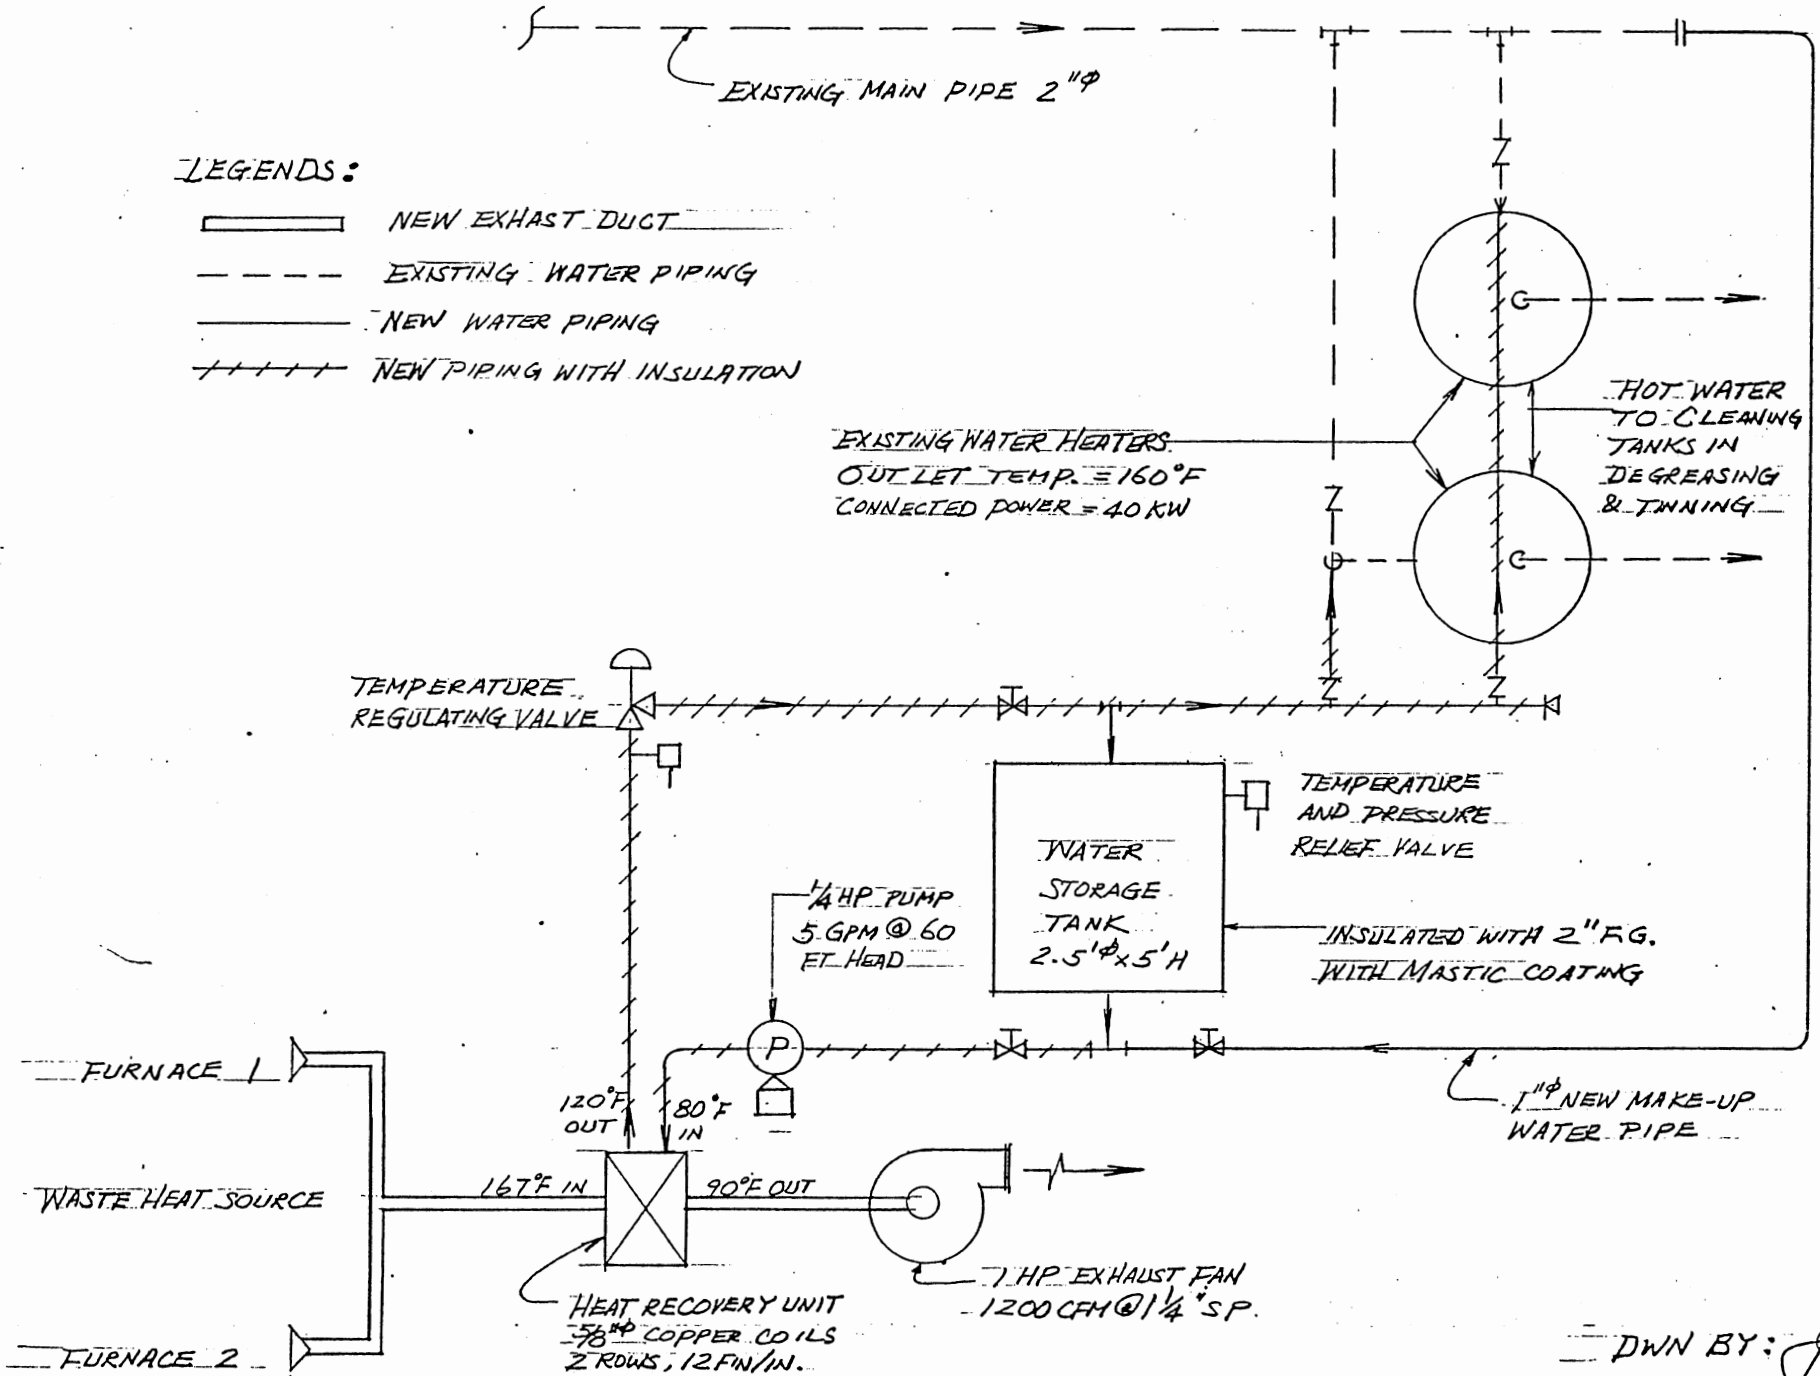 EXISTING MAIN PIPE 2"φ
LEGENDS:
NEW EXHAST DUCT
EXISTING WATER PIPING
NEW WATER PIPING
NEW PIPING WITH INSULATION
EXISTING WATER HEATERS
OUTLET TEMP. = 160°F
CONNECTED POWER = 40 KW
HOT WATER
TO CLEANING
TANKS IN
DEGREASING
& TINNING
TEMPERATURE
REGULATING VALVE
TEMPERATURE
AND PRESSURE
RELIEF VALVE
WATER
STORAGE
TANK
2.5'φ x 5'H
1/4 HP PUMP
5 GPM @ 60
FT HEAD
INSULATED WITH 2" F.G.
WITH MASTIC COATING
P
FURNACE 1
120°F
OUT
80°F
IN
1"φ NEW MAKE-UP
WATER PIPE
WASTE HEAT SOURCE
167°F IN
90°F OUT
1 HP EXHAUST FAN
1200 CFM @ 1 1/4" SP.
HEAT RECOVERY UNIT
5/8"φ COPPER COILS
2 ROWS, 12 FIN/IN.
FURNACE 2
DWN BY: